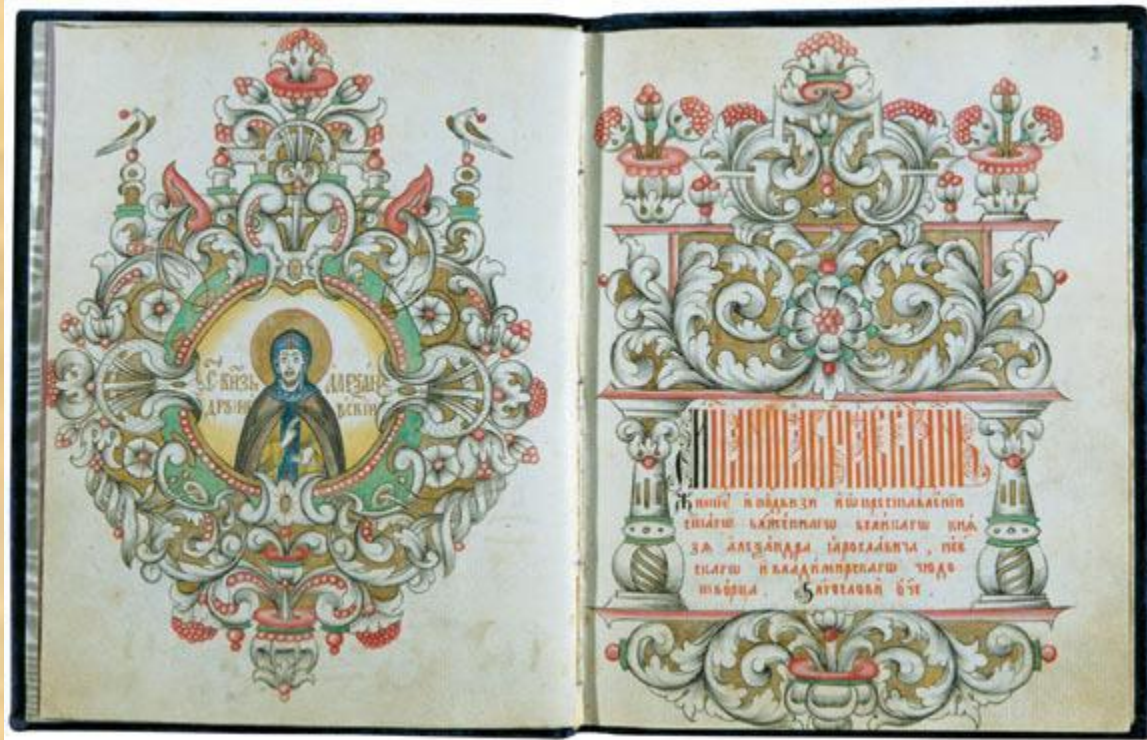 С҃ кн҃зь Алеѯан
дръ не вскїи
2
Жи́тїе и҆ по́двизи и҆ ѡ҆ преставле́нїи
ст҃а́гѡ бл҃же́ннагѡ вели́кагѡ кнѧ́
зѧ алеѯа́ндра ꙗ҆росла́вича , не́в
скагѡ и҆ влади́мирскагѡ чюдо
тво́рца . Бл҃гослови́ ѻ҆́ч҃е .